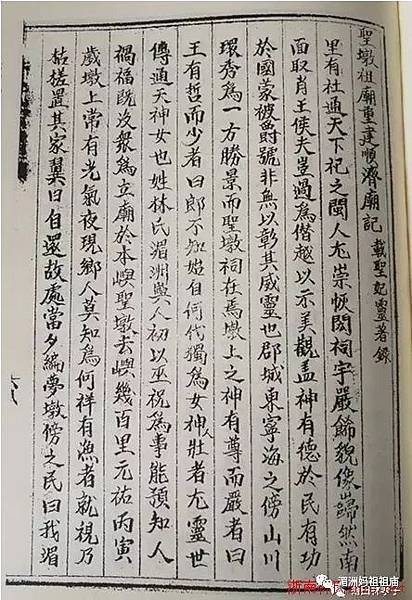 聖墩祖廟重建順濟廟記 載聖妃靈著錄
里有社通天下祀之閩人尤崇恢閎祠宇嚴飾貌像巋然南
面取肖王侯夫豈過為僭越以示美觀盖神有德於民有功
於國蒙被爵號非無以彰其威靈也郡城東寧海之傍山川
環秀為一方勝景而聖墩祠在焉墩上之神有尊而嚴者曰
王有哲而少者曰郎不知始自何代獨為女神人壯者尤靈世
傳通天神女也姓林氏湄洲嶼人初以巫祝為事能預知人
禍福既沒眾為立廟於本嶼聖墩去嶼幾百里元祐丙寅
歲墩上常有光氣夜現鄉人莫知為何祥有漁者就視乃
枯槎置其家翼日自還故處當夕編夢墩傍之民曰我湄
湄洲妈祖祖庙